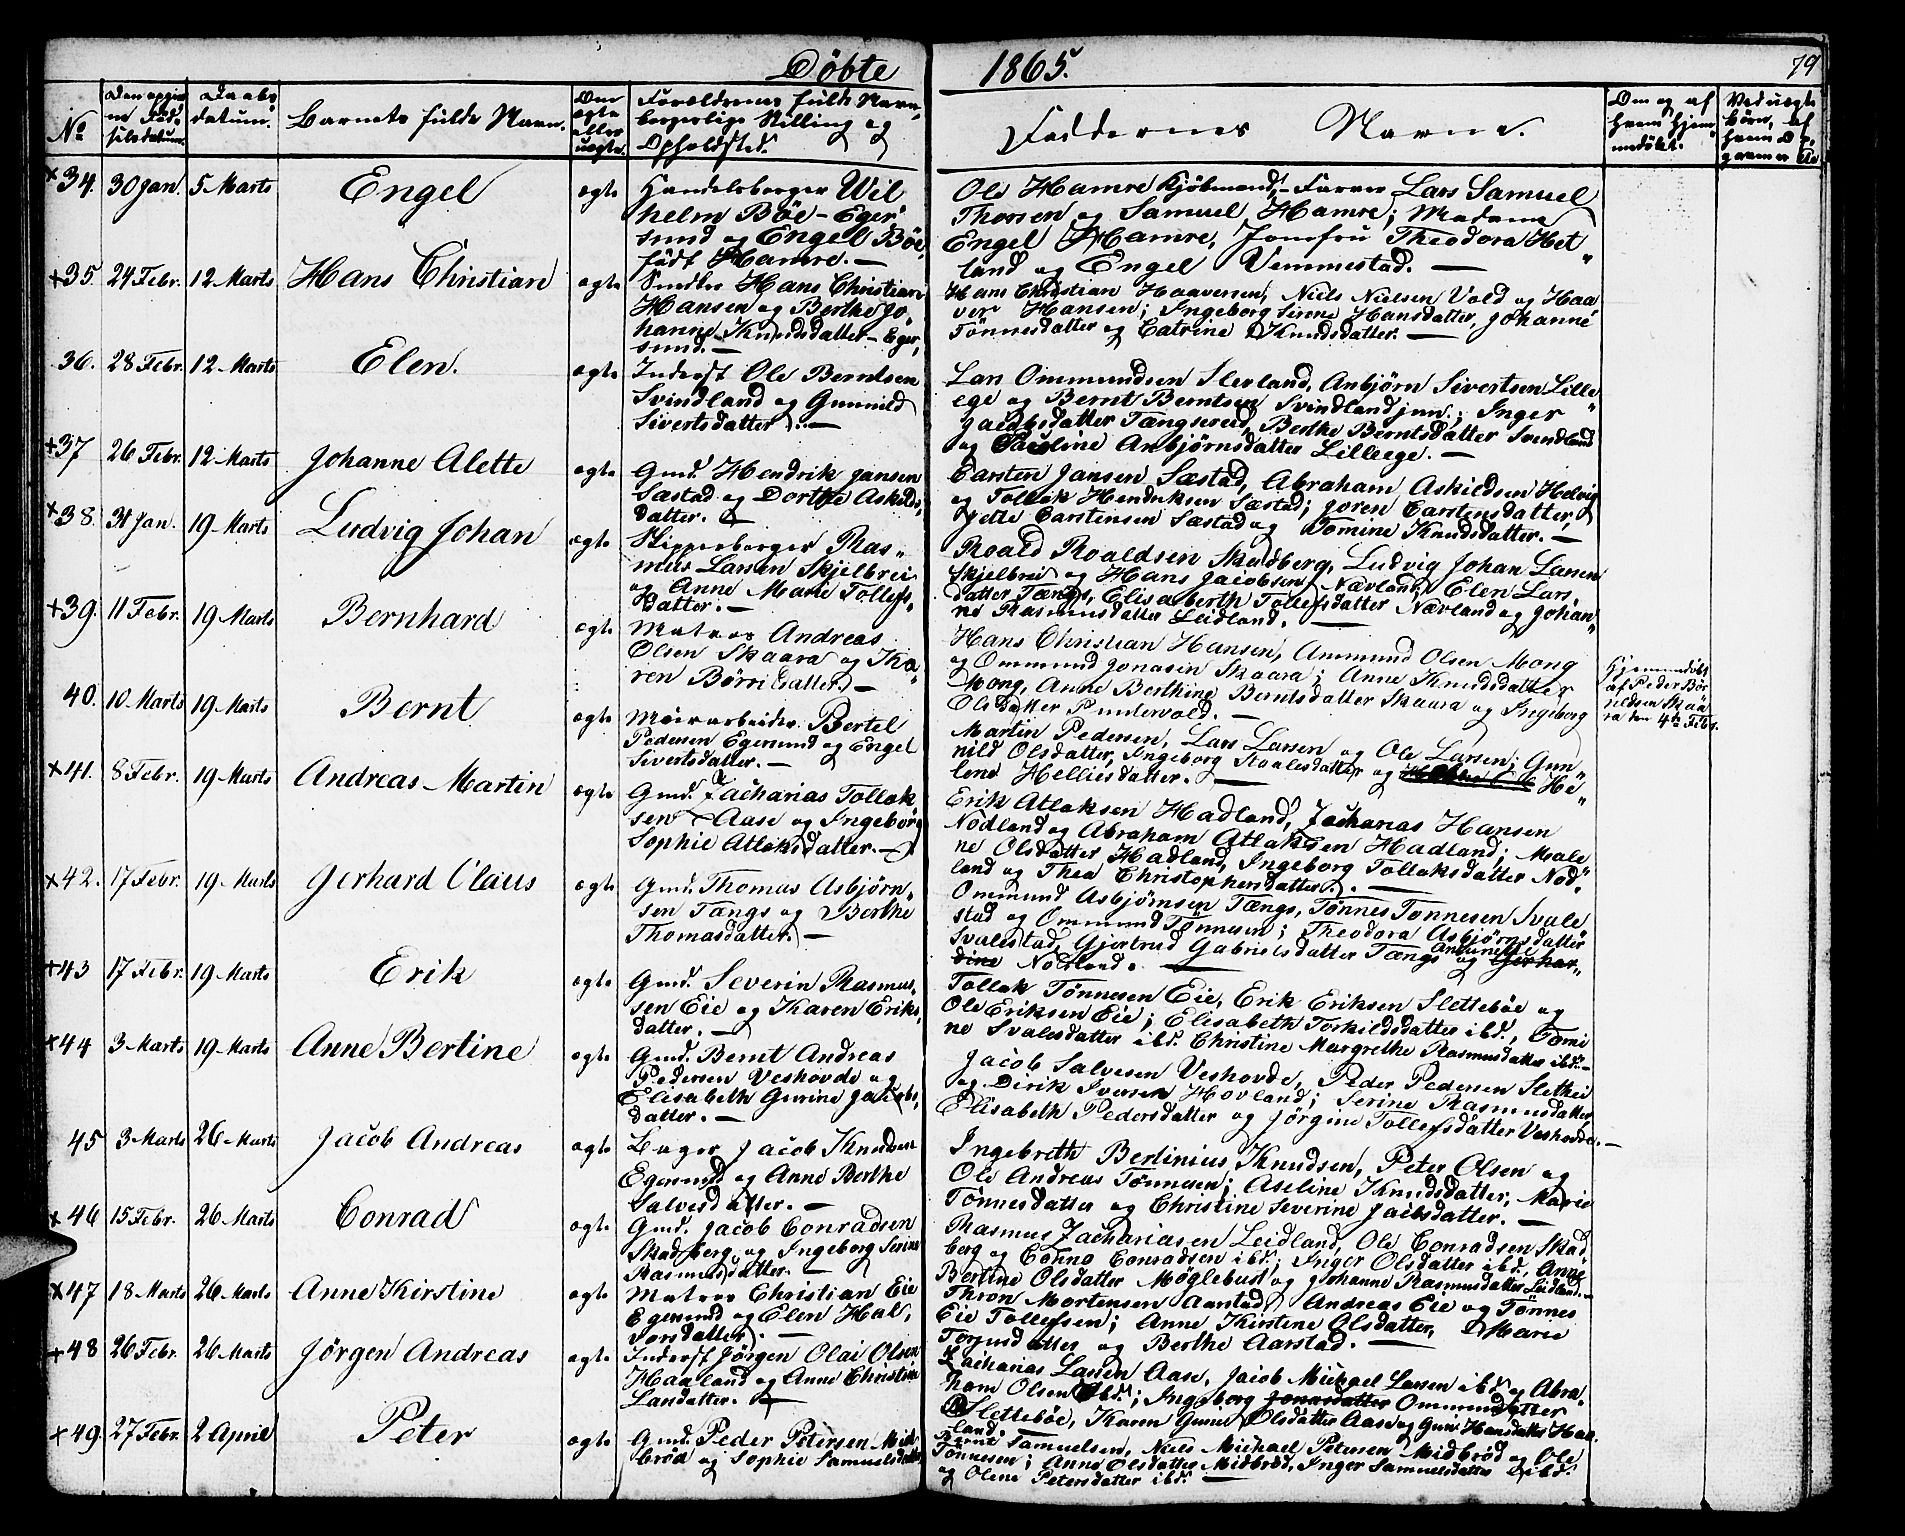 Döbte 1865. 79
No
Den opgivne Födselsdatum.
Daabsdatum.
Barnets fulde Navn.
Om ægte eller uægte.
Forældrenes fulde Navn, borgerlige Stilling og Opholdsted.
Faddernes Navne.
Om og af hvem hjemmedöbt.
Ved uægte Börn, af hvem
×34. 30 Jan. 5 Marts Engel ægte Handelsborger Wil-
helm Böe – Eger-
sund og Engel Böe
født Hamre. —
Ole Hamre Kjöbmand, Lars Samuel
Thorsen og Samuel Hamre; Madame
Engel Hamre, Jomfru Theodora Het-
land og Engel Vemmestad. —
+35. 24 Febr. 12 Marts Hans Christian ægte Snedker Hans Christian
Hansen og Berthe Jo-
hanne Knudsdatter – Eger-
sund. —
Hans Christian Haaversen, Niels Nielsen Vold og Haa-
ver Hansen; Ingeborg Serene Hansdatter, Johanne
Tönnesdatter og Catrine Knudsdatter. —
36. 28 Febr. 12 Marts Elen. ægte Inderst Ole Berntsen
Svindland og Gunnild
Sivertsdatter. —
Lars Ommundsen Slevland, Anbjörn Sivertsen Lille-
ege og Bernt Berntsen Svindland jun.; Inger
Jacobsdatter Tængsereid, Berthe Berntsdatter Svindland
og Pauline Anbjörnsdatter Lilleege. —
+37 26 Febr. 12 Marts Johanne Alette ægte Gmd. Hendrik Jansen
Sæstad og Dorthe Askilds-
datter. —
Carsten Jansen Sæstad, Abraham Askildsen Helvig
og Tollak Hendriksen Sæstad; Joren Carstensdatter,
Jette Carstensen Sæstad og Tomine Knudsdatter. —
×38. 31 Jan. 19 Marts Ludvig Johan ægte Skipperborger Ras-
mus Larsen Skjelbrei
og Anne Marie Tollefs-
datter. —
Roald Roaldsen Skadberg, Ludvig Johan Larsen
Skjelbrei og Hans Jacobsen Nævland; Elen Lars-
datter Tængs, Elisaberth Tollefsdatter Nævland og Johan-
ne Rasmusdatter Leidland. —
+39. 11 Febr. 19 Marts Bernhard ægte Matros Andreas
Olsen Skaara og Ka-
ren Börrildsatter —
Hans Christian Hansen, Ammund Olsen Mong
og Ommund Jonasen Skaara; Anne Knudsdatter
Mong, Anne Berthine Berntsdatter Skaara og Ingeborg
Olsdatter Pundervold. —
Hjemmedöbt
af Peder Bör-
rildsen Skaa-
ra den 4de Febr.
40. 10 Marts 19 Marts Bernt ægte Bertel
Pedersen Egersund og Engel
Sivertsdatter. —
Martin Pedersen, Lars Larsen og Ole Larsen; Gun-
nild Olsdatter, Ingeborg Staalesdatter og He-
lene Helliesdatter. —
×41. 8 Febr. 19 Marts Andreas Martin ægte Gmd. Zacharias Tollak-
sen Aase og Ingeborg
Sophie Atlaksdatter. —
Erik Atlaksen Hadland, Zacharias Hansen
Nodland og Abraham Atlaksen Hadland; Male-
ne Olsdatter Hadland, Ingeborg Tollaksdatter Nod-
land og Thea Christophersdatter. —
×42. 17 Febr. 19 Marts Gerhard Claus ægte Gmd. Thomas Asbjörn-
sen Tængs og Berthe
Thomasdatter. —
Ommund Asbjörnsen Tængs, Tönnes Tonnesen Svale-
stad og Ommund Tönnesen; Theodora Asbjörnsdatter
Svalestad, Gjertrud Gabrielsdatter Tængs og Gerhar-
dine Nodland. —
+43 17 Febr. 19 Marts Erik ægte Gmd. Severin Rasmus-
sen Eie og Karen Eriks-
datter. —
Tollak Tönnesen Eie, Erik Eriksen Sletteböe og
Ole Eriksen Eie; Elisabeth Torkildsdatter ibd., Tomi-
ne Svalesdatter ibd. Christine Margrethe Rasmusdatter ibd. —
×44 3 Marts 19 Marts Anne Bertine ægte Gmd. Bernt Andreas
Pedersen Veshovde og
Elisabeth Gurine Jacobs-
datter. —
Jacob Salvesen Veshovde, Peder Pedersen Slethei
og Dirik Iversen Hovland; Serine Rasmusdatter,
Elisabeth Pedersdatter og Jörgine Tollefsdatter Veshovde. —
45 3 Marts 26 Marts Jacob Andreas ægte Bager Jacob Knudsen
Egersund og Anne Berthe
Salvesdatter. —
Ingebreth Bertinius Knudsen, Peter Olsen og
Ole Andreas Tönnesen; Aseline Knudsdatter, Marie
Tönnesdatter og Christine Severine Jacobsdatter. —
×46 15 Febr. 26 Marts Conrad ægte Gmd. Jacob Conradsen
Skadberg og Ingeborg Serine
Rasmusdatter. —
Rasmus Zachariasen Leidland, Ole Conradsen Skad-
berg og Tönno Conradsen ibd.; Inger Olsdatter ibd., Anne
Bertine Olsdatter Möglebust og Johanne Rasmusdatter Leidland. —
×47 18 Marts 26 Marts Anne Kirstine ægte Matros Christian Eie
Egersund og Elen Hal-
vorsdatter. —
Thron Mortensen Aanstad, Andreas Eie og Tönnes
Eie Tollefsen; Anne Kirstene Olsdatter, Marie
Torjusdatter og Berthe Aarstad. —
+48 26 Febr. 26 Marts Jörgen Andreas ægte Inderst Jörgen Olai Olsen
Haaland og Anne Christine
Larsdatter. —
Zacharias Larsen Aase, Jacob Michael Larsen ibd. og Abra-
ham Olsen ibd.; Ingeborg Jonasdatter Ommundsdatter
Slettebøe, Karen Gurine Olsdatter Aase og Guri Hansdatter Haa-
land.
+49. 27 Febr. 2 April Peter ægte Gmd. Peder Petersen Mid-
bröd og Sophie Samuelsdatter
Bernt Samuelsen, Niels Michael Petersen Midbröd og Ole
Tönnesen; Anne Olsdatter Midbröd, Inger Samuelsdatter ibd.
og Olene Petersdatter ibd. —